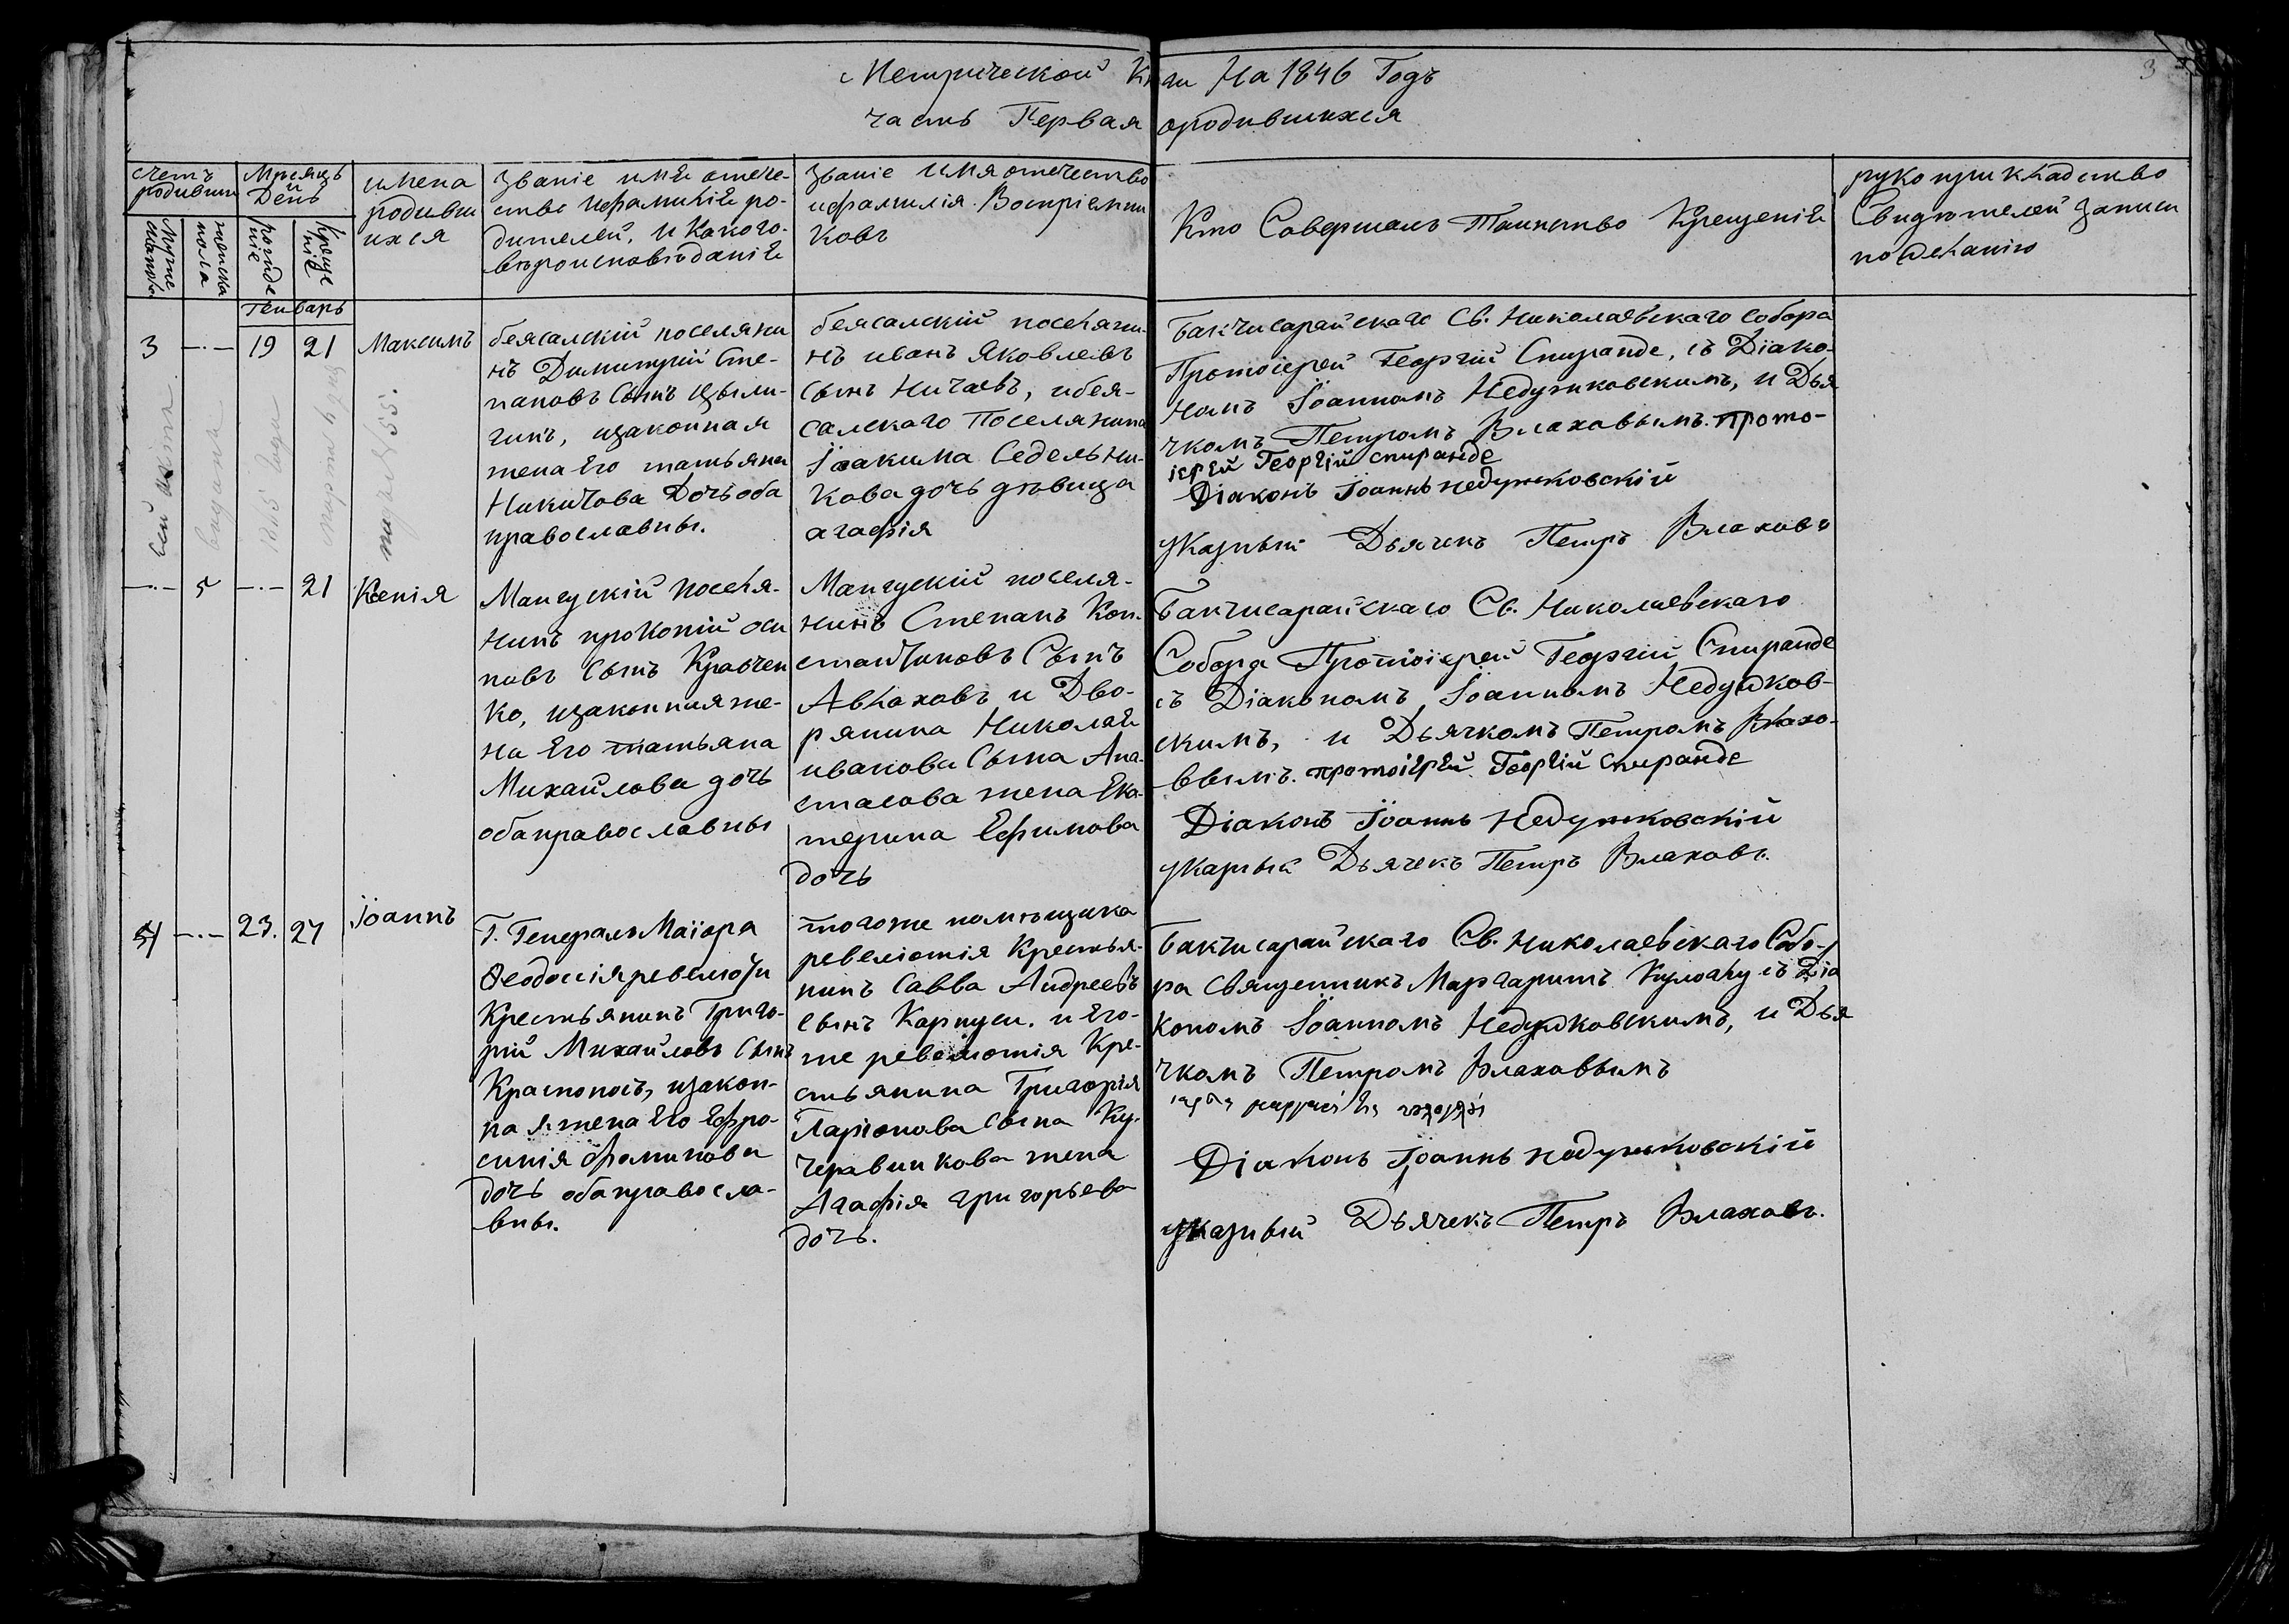 Метрической Книги На 1846 Годъ
3
часть Первая о родившихся
счетъ родивши
Мѣсяцъ и День
имена родивши ихся
Званіе имя отече-
ство ифамилія ро-
дителей, и Какого-
вѣроисповѣданія
Званіе имя отечество
ифамилія Воспріемни
ковъ
Кто Совершалъ Таинство Крещенія
рукоприкладство
Свидѣтелей записи
по желанію
Мужеска
женска пола
рожде ніе
Креще ніе
Генварь
3 -·- 19 21
Максимъ
беясалскій поселяни
нъ Димитрій Сте-
пановъ Сынъ Цыли-
гинъ, изаконная
жена Его татьяна
Никитова Дочь оба
православны.
беясалскій поселяни-
нъ иванъ Яковлевъ
Сынъ Ничаевъ, ибея-
салскаго Поселянина
Іоакима Седельни-
кова дочь дѣвица
агафія
Бакчисарайскаго Св. Николаевскаго собора
Протоіерей Георгій Спиранде, съ Діако-
номъ Іоанномъ Недужковскимъ, и Дья
чкомъ Петромъ Влаховымъ. Прото-
іерей Георгій спиранде
Діаконъ Іоаннъ недужковскій
указный Дьячекъ Петръ Влаховъ
выдана
1855 года
марта
-·- 5 -·- 21
Ксенія
Мангускій поселя-
нинъ прокопій оси
повъ Сынъ Кравчен
ко, изаконная же-
на Его татьяна
Михайлова дочь
оба православны
Мангускій поселя-
нинъ Степанъ Кон-
стантиновъ Сынъ
Авлаховъ и Дво-
рянина Николая
иванова Сына Ана-
стасова жена Ека-
терина Ефимова
дочь
Бакчисарайскаго Св. Николаевскаго
Собора Протоіерей Георгій Спиранде
съ Діакономъ Іоанномъ Недужков-
скимъ, и Дьячкомъ Петромъ Влахо-
вымъ. протоіерей Георгій Спиранде
Діаконъ Іоаннъ Недужковскій
указный Дьячекъ Петръ Влаховъ.
4 -·- 23. 27
Іоаннъ
Г. Генералъ Маіора
Ѳеодосія ревеліоти
Крестьянинъ Григо-
рій Михайловъ Сынъ
Красноносъ, изакон-
ная жена Его Ефро-
синія Фоминова
дочь оба правосла-
вны.
тогоже помѣщика
ревеліотія Крестья-
нинъ Савва Андреевъ
сынъ Карпуси. и Его-
же ревеліотія Кре-
стьянина Григорія
Ларіонова сына Ку-
черавинкова жена
Агафія григорьева
дочь.
Бакчисарайскаго Св. Николаевскаго Собо-
ра Священникъ Маргаритъ съ Діа
кономъ Іоанномъ Недужковскимъ, и Дья
чкомъ Петромъ Влаховымъ
Діаконъ Іоаннъ недужковскій
указный Дьячекъ Петръ Влаховъ.